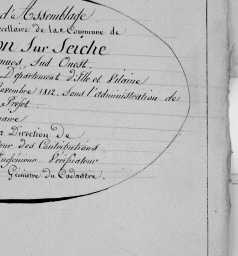 d'Assemblage
cellaire de la Commune de
on Sur Seiche
nnes, Sud Ouest.
Département d'Ille et Vilaine
ovembre 1812. Sous l'administration de
Préfet
maire
a Direction de
eur des Contributions
Ingénieur Vérificateur
Géomètre du Cadastre.